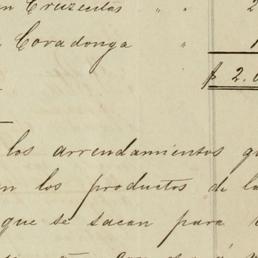 n Cruzectas " " 2
Covadonga " 1
$ 2.0
los arrendamientos q
en los productos de la
que se sacan para